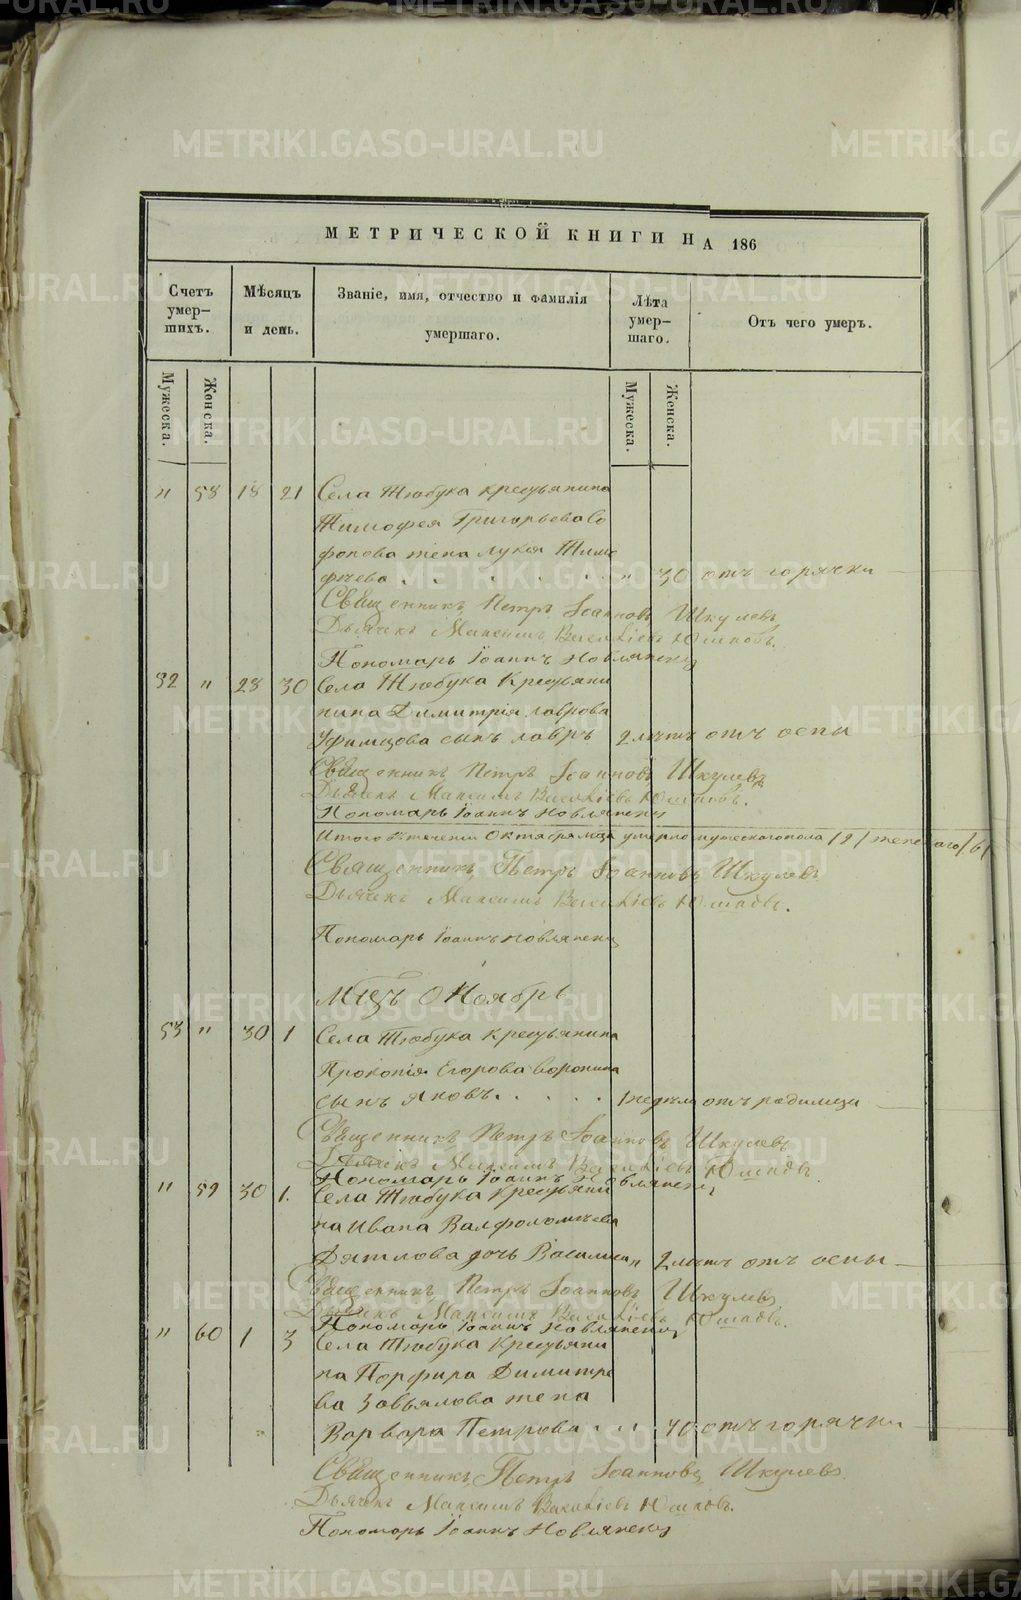 МЕТРИЧЕСКОЙ КНИГИ НА 186
Счетъ умер-шихъ. Мѣсяцъ и день. Званіе, имя, отчество и фамилія умершаго. Лѣта умер-шаго. Отъ чего умеръ.
Мужеска. Женска. Мужеска. Женска.
" 58 18 21 Села Тюбука крестьянина
Тимофея Григорьева
жена Лукія Тимо
фѣева . . . . . . . " 30 отъ горячки
Священникъ Петръ Іоанновъ Шкулевъ
Дьячекъ Максимъ Василіевъ Юшковъ.
Пономарь Іоаннъ Новлянскій
52 " 28 30 Села Тюбука Крестьяни
нина Димитрія Лаврова
Уфимцова сынъ Лавръ 2 лѣтъ отъ оспы
Священникъ Петръ Іоанновъ Шкулевъ
Дьячекъ Максимъ Василіевъ Юшковъ.
Пономарь Іоаннъ Новлянскій
Итого въ теченіи Октября мца умерло мужескаго пола /9/ женскаго /6/
Священникъ Петръ Іоанновъ Шкулевъ
Дьячекъ Максимъ Василіевъ Юшковъ.
Пономарь Іоаннъ Новлянскій
Мѣцъ Ноябрь
53 " 30 1 Села Тюбука крестьянина
Прокопія Егорова Воронина
сынъ Яковъ . . . . . 1 недѣли отъ родимца
Священникъ Петръ Іоанновъ Шкулевъ
Дьячекъ Максимъ Василіевъ Юшковъ.
Пономарь Іоаннъ Новлянскій
" 59 30 1. Села Тюбука Крестьяни
на Ивана Валфоломѣева
Дятлова дочь Василиса " 2 лѣтъ отъ оспы
Священникъ Петръ Іоанновъ Шкулевъ
Дьячекъ Максимъ Василіевъ Юшковъ.
Пономарь Іоаннъ Новлянскій
" 60 1 3 Села Тюбука Крестьяни
на Порфира Димитрі
ва Завьялова жена
Варвара Петрова . . . 40 отъ горячки
Священникъ Петръ Іоанновъ Шкулевъ
Дьячекъ Максимъ Василіевъ Юшковъ.
Пономарь Іоаннъ Новлянскій
METRIKI.GASO-URAL.RU